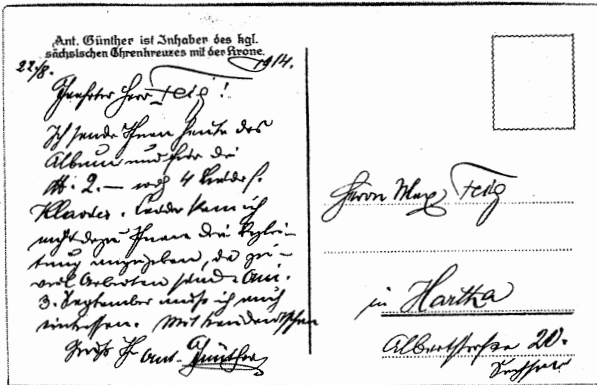 Ant. Günther ist Inhaber des kgl.
sächsischen Ehrenkreuzes mit der Krone.
22./8. 1914.
Geehrter Herr Feig!
Ich sende Ihnen heute das
Album und für die
M. 2.— noch 4 Lieder f.
Klavier. Leider kam ich
nicht dazu Ihnen die Beglei-
tung anzugeben, da zu-
viel Arbeiten sind. Am
3. September muß ich auch
einrücken. Mit deutschen
Gruß Ihr Ant. Günther
Herrn Max Feig
in Hartha
Albertstraße 20.
Sachsen